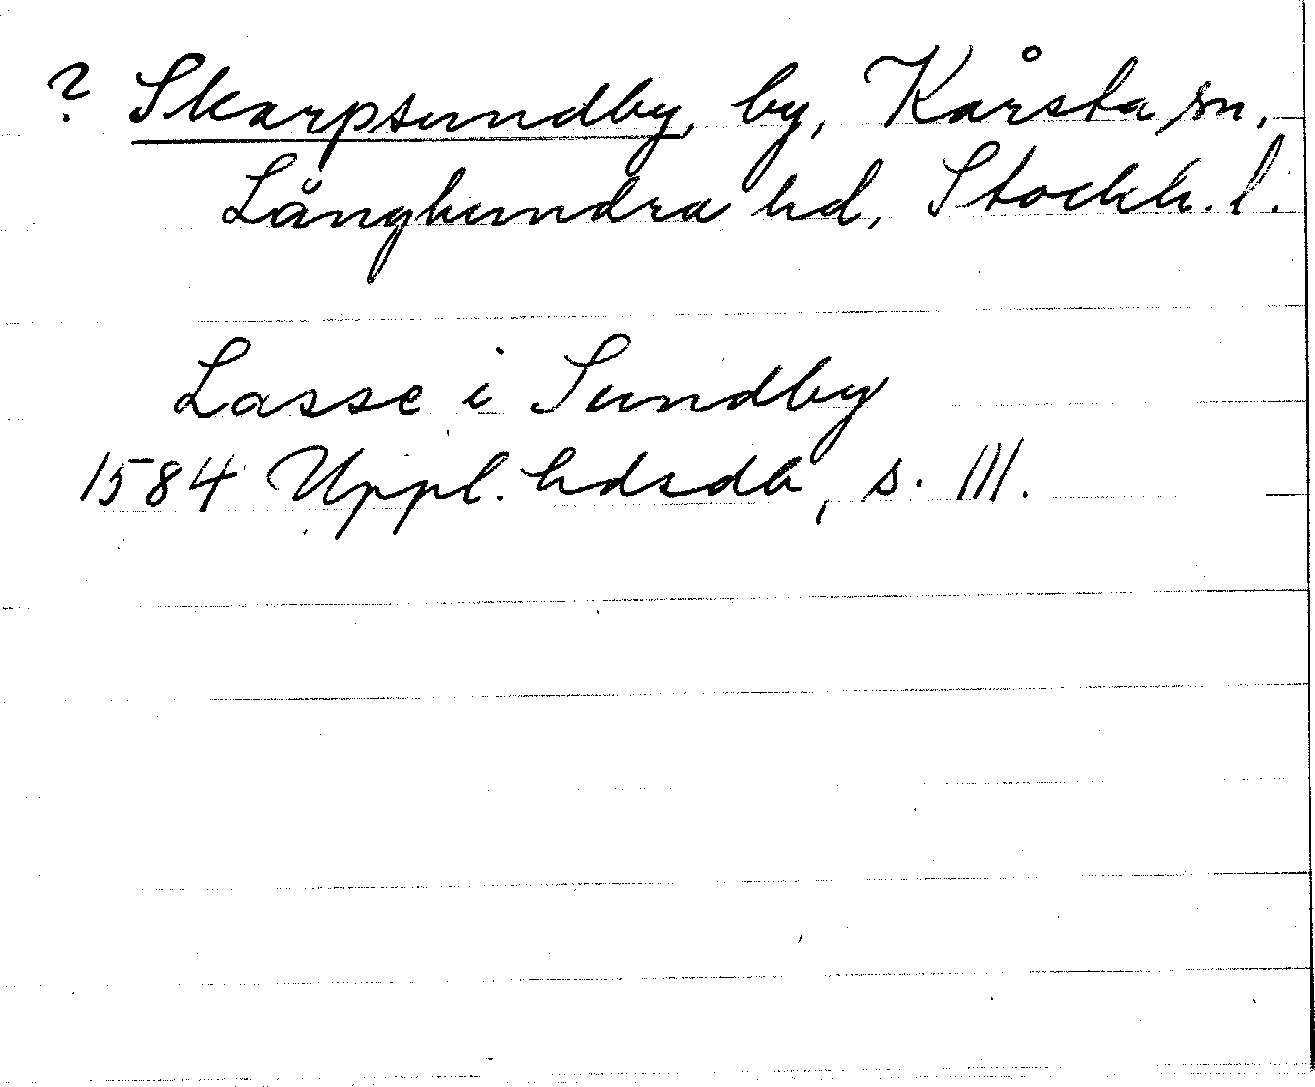 ? Skarpsundby, by, Kårsta sn,
Långhundra hd, Stockh. l.
Lasse i Sundby
1584 Uppl. hdrdb, s. 111.